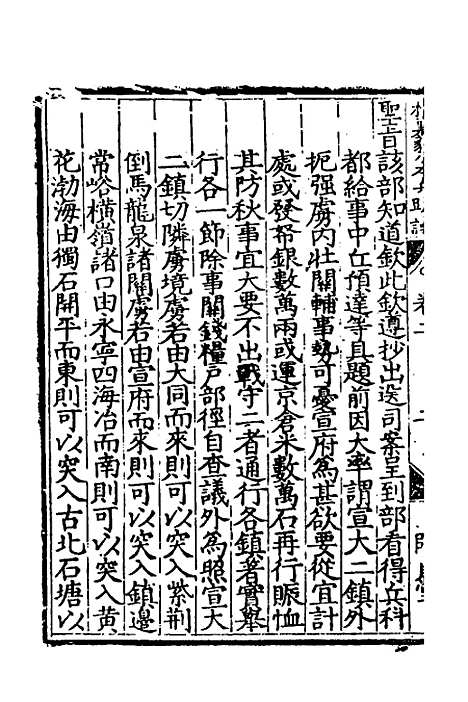 聖旨該部知道欽此欽遵抄出送司案呈到部看得兵科
都給事中丘預達等具題前因大率謂宣大二鎮外
扼强虜内壯關輔事勢可憂宣府為甚欲要從宜計
處或發帑銀數萬兩或運京倉米數萬石再行賑恤
其防秋事宜大要不出戰守二者通行各鎮著實舉
行各一節除事關錢糧户部徑自查議外為照宣大
二鎮切隣虜境虜若由大同而來則可以突入紫荆
倒馬龍泉諸關虜若由宣府而來則可以突入鎮邊
常峪横嶺諸口由永寧四海冶而南則可以突入黄
花渤海由獨石開平而東則可以突入古北石塘以